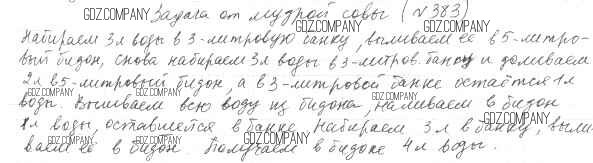 GDZ.COMPANY
Задача от мудрой совы (№383) GDZ.COMPANY
GDZ.COMPANY GDZ.COMPANY
Набираем 3л воды в 3-литровую банку, выливаем её в 5-литро-
вый бидон, снова набираем 3л воды в 3-литров. банку и доливаем
GDZ.COMPANY
2л в 5-литровый бидон, а в 3-литровой банке остаётся 1л
GDZ.COMPANY GDZ.COMPANY
воды. Выливаем всю воду из бидона, наливаем в бидон
1л воды, оставшейся в банке. Набираем 3л в банку, выли-
GDZ.COMPANY GDZ.COMPANY GDZ.COMPANY
ваем её в бидон. Получаем в бидоне 4л воды.